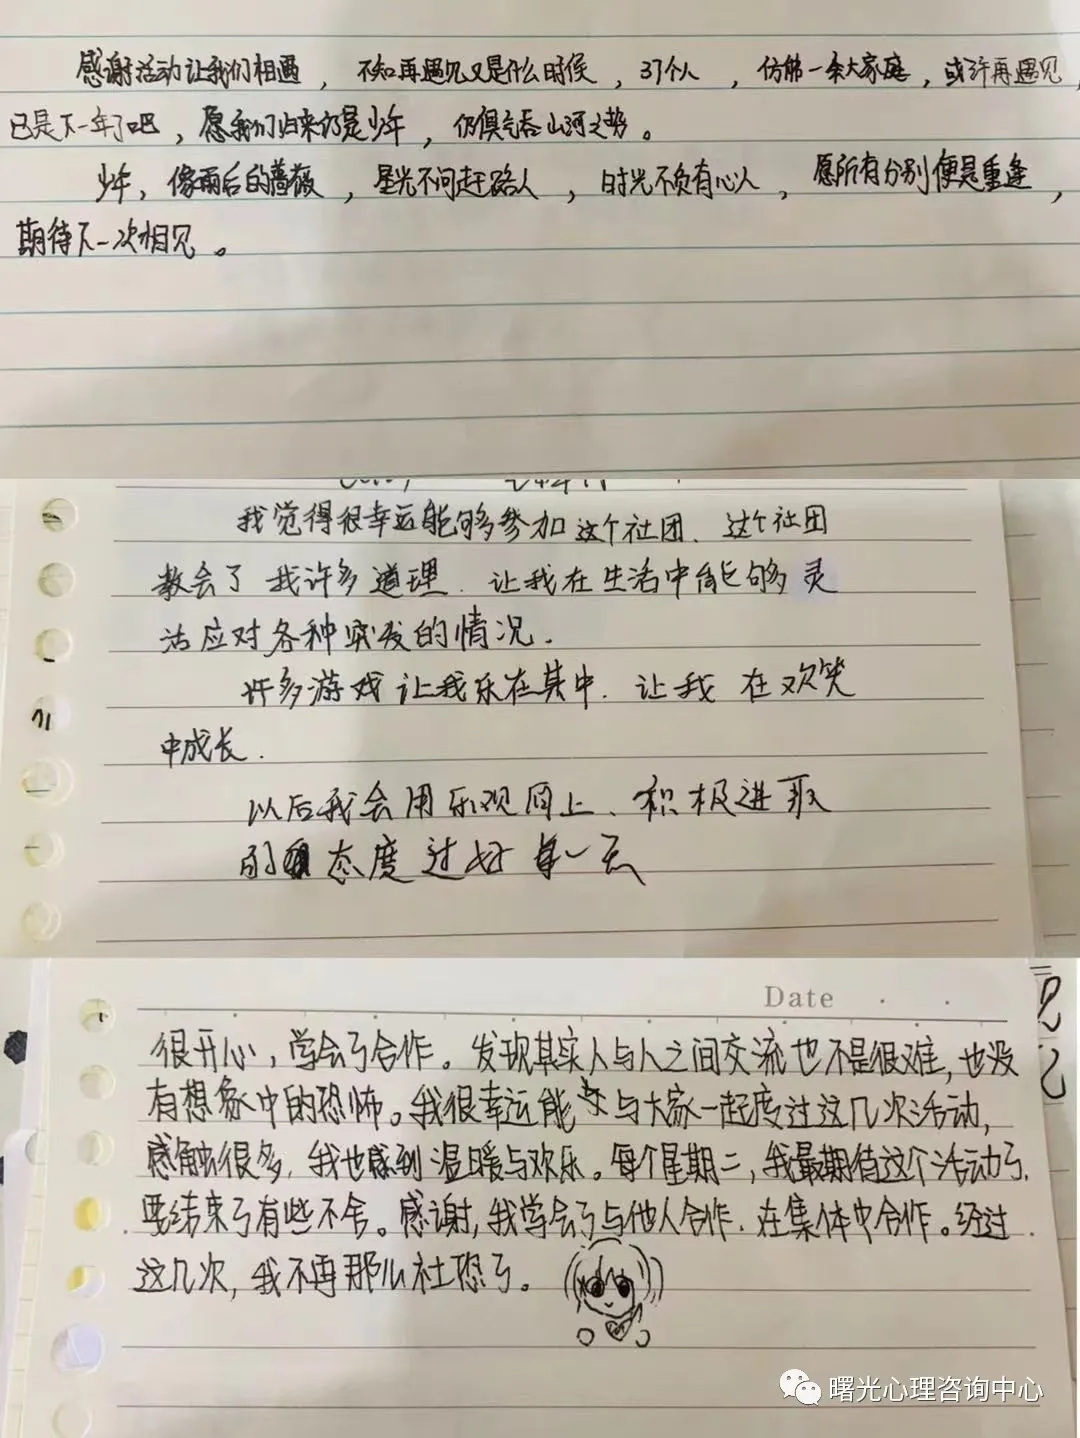 感谢活动让我们相遇，不知再遇见又是什么时候，37个人，仿佛一条大家庭，或许再遇见，
已是下一年了吧，愿我们归来仍是少年，仍俱气吞山河之势。
少年，像雨后的蔷薇，星光不问赶路人，时光不负有心人，愿所有分别便是重逢，
期待下一次相见。
我觉得很幸运能够参加这个社团．这个社团
教会了我许多道理．让我在生活中能够灵
活应对各种突发的情况．
许多游戏让我乐在其中．让我在欢笑
中成长．
以后我会用乐观向上、积极进取
的态度过好每一天
Date
很开心，学会了合作。发现其实人与人之间交流也不是很难，也没
有想象中的恐怖。我很幸运能与大家一起度过这几次活动，
感触很多．我也感到温暖与欢乐。每个星期二，我最期待这个活动了．
要结束了有些不舍。感谢，我学会了与他人合作．在集体中合作。经过
这几次，我不再那么社恐了。
曙光心理咨询中心